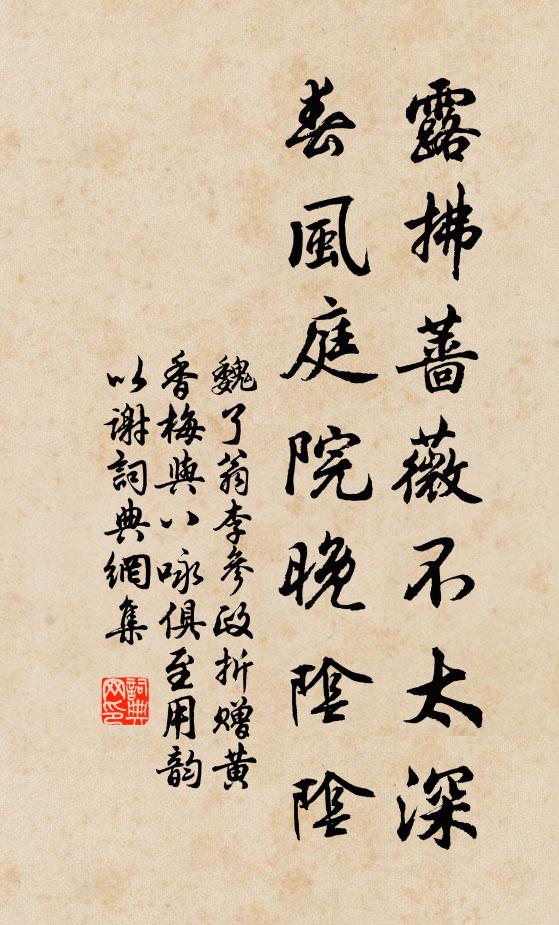 露拂薔薇不太深
春風庭院晚陰陰
魏了翁李參政折贈黃
香梅與八詠俱至用韵
以謝詞典網集
詞典
网印